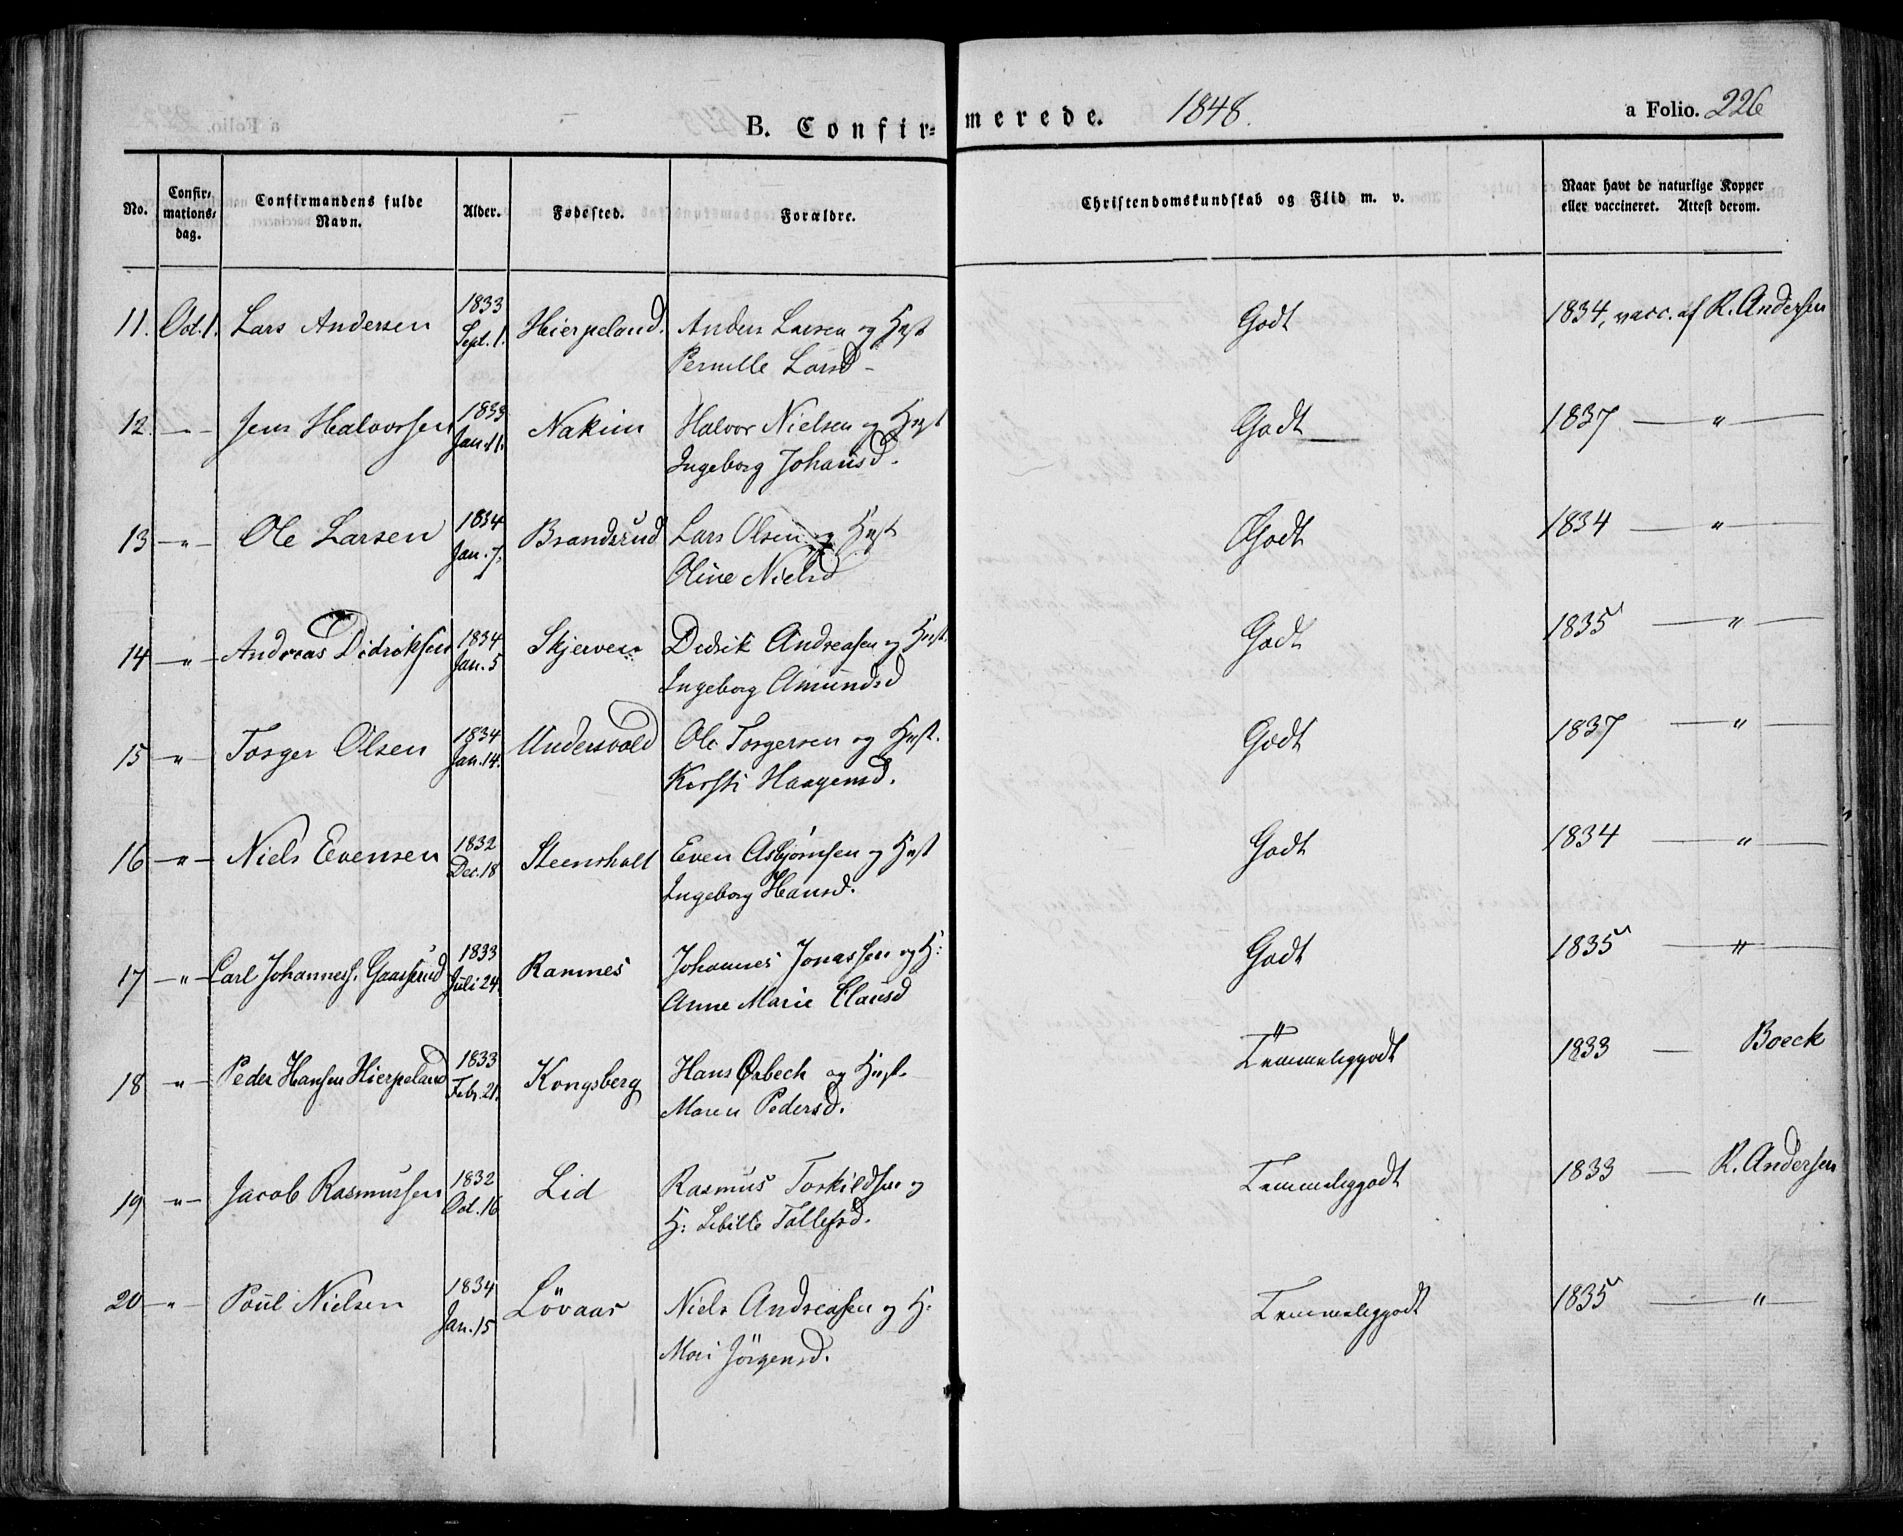 B. Confirmerede. 1848. a Folio. 226
No. Confirmationsdag. Confirmandens fulde Navn. Alder. Fødested. Forældre. Christendomskundskab og Flid m. v. Naar havt de naturlige Kopper eller vaccineret. Attest derom.
11. Oct. 1. Lars Andersen 1833 Sept. 1. Hierpeland. Anders Larsen og Hust Godt 1834, vacc. af R. Andersen
Pernille Larsd
12. — Jens Halvorsen 1833 Jan. 11. Nakim Halvor Nielsen og Hust Godt 1837 — " —
Ingeborg Johansd.
13 — " — Ole Larsen 1834 Jan. 7. Brandsrud Lars Olsen og Hust Godt 1834 — " —
Oline Nielsd
14 — " — Andreas Didriksen 1834 Jan. 5 Skjerven Didrik Andreasen og Hust. Godt 1835 — " —
Ingeborg Amundsd
15 — " — Torger Olsen 1834 Jan. 14. Undersvold Ole Torgersen og Hust. Godt 1837 — " —
Kirsti Haagensd.
16 — " — Niels Evensen 1832 Dec. 18 Steensholt Even Asbjørnsen og Hust Godt 1834 — " —
Ingeborg Hansd.
17 — " — Carl Johanness. Gaasserud 1833 Juli 24. Ramnes Johannes Jonassen og H: Godt 1835 — " —
Anne Marie Clausd
18 — " — Peder Hansen Hierpeland 1833 Febr. 21. Kongsberg Hans Ørbech og Hust. Temmeliggodt 1833 — Boeck
Maren Pedersd.
19 — " — Jacob Rasmussen 1832 Oct. 16 Lid Rasmus Torkildsen og Temmeliggodt 1833 — R. Andersen
H: Sibille Tollefsd.
20 — " — Poul Nielsen 1834 Jan. 15 Lövaas Niels Andreasen og H: Temmeliggodt 1835 — " —
Mari Jörgensd.